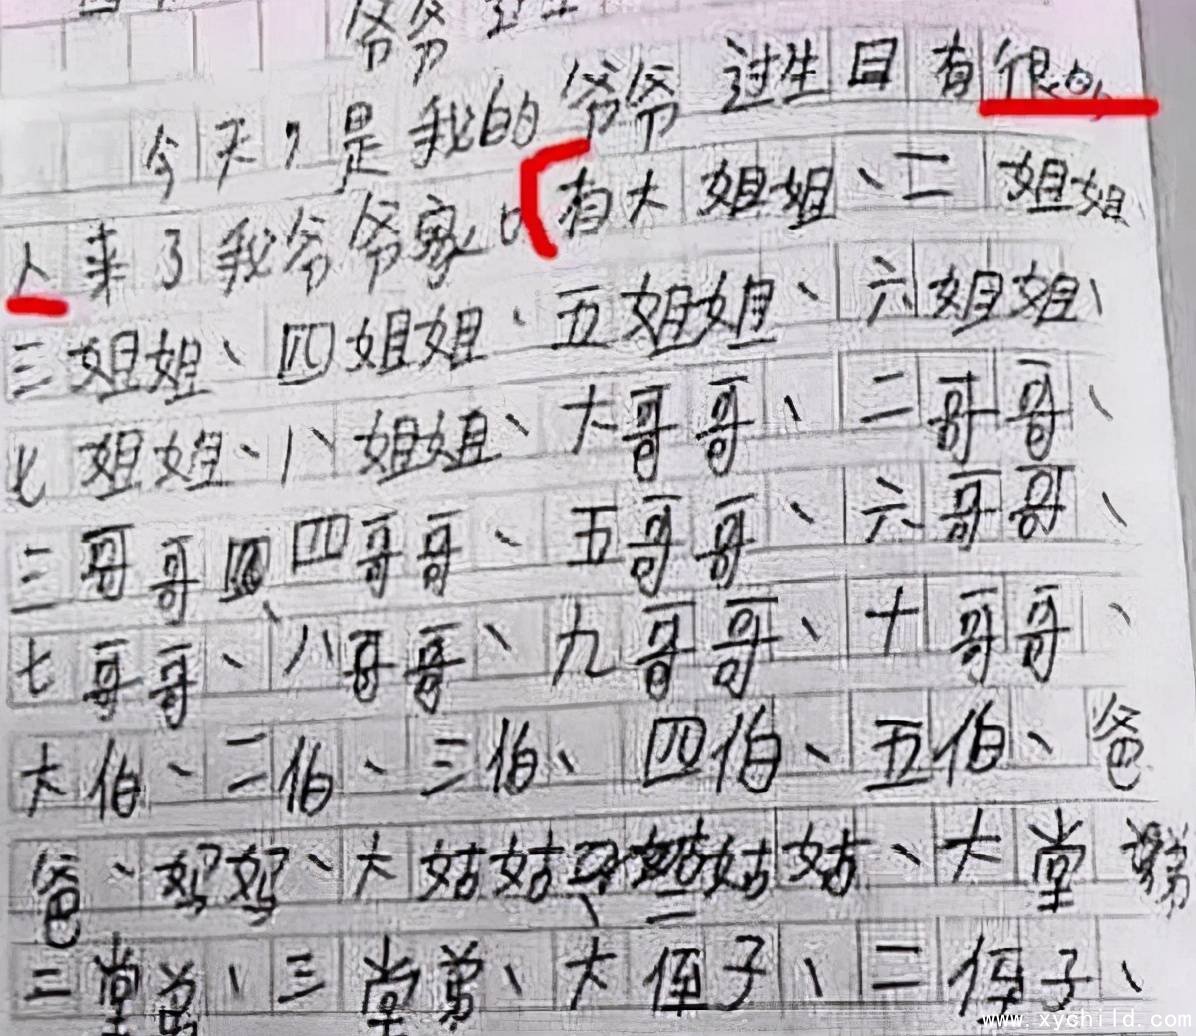 爷爷
今天,是我的爷爷过生日有很
人来了我爷爷家。有大姐姐、二姐姐、
三姐姐、四姐姐、五姐姐、六姐姐、
七姐姐、八姐姐、大哥哥、二哥哥、
三哥哥、四哥哥、五哥哥、六哥哥、
七哥哥、八哥哥、九哥哥、十哥哥、
大伯、二伯、三伯、四伯、五伯、爸
爸、妈妈、大姑姑、二姑姑、大堂弟
二堂弟、三堂弟、大侄子、二侄子、
www.xychild.com